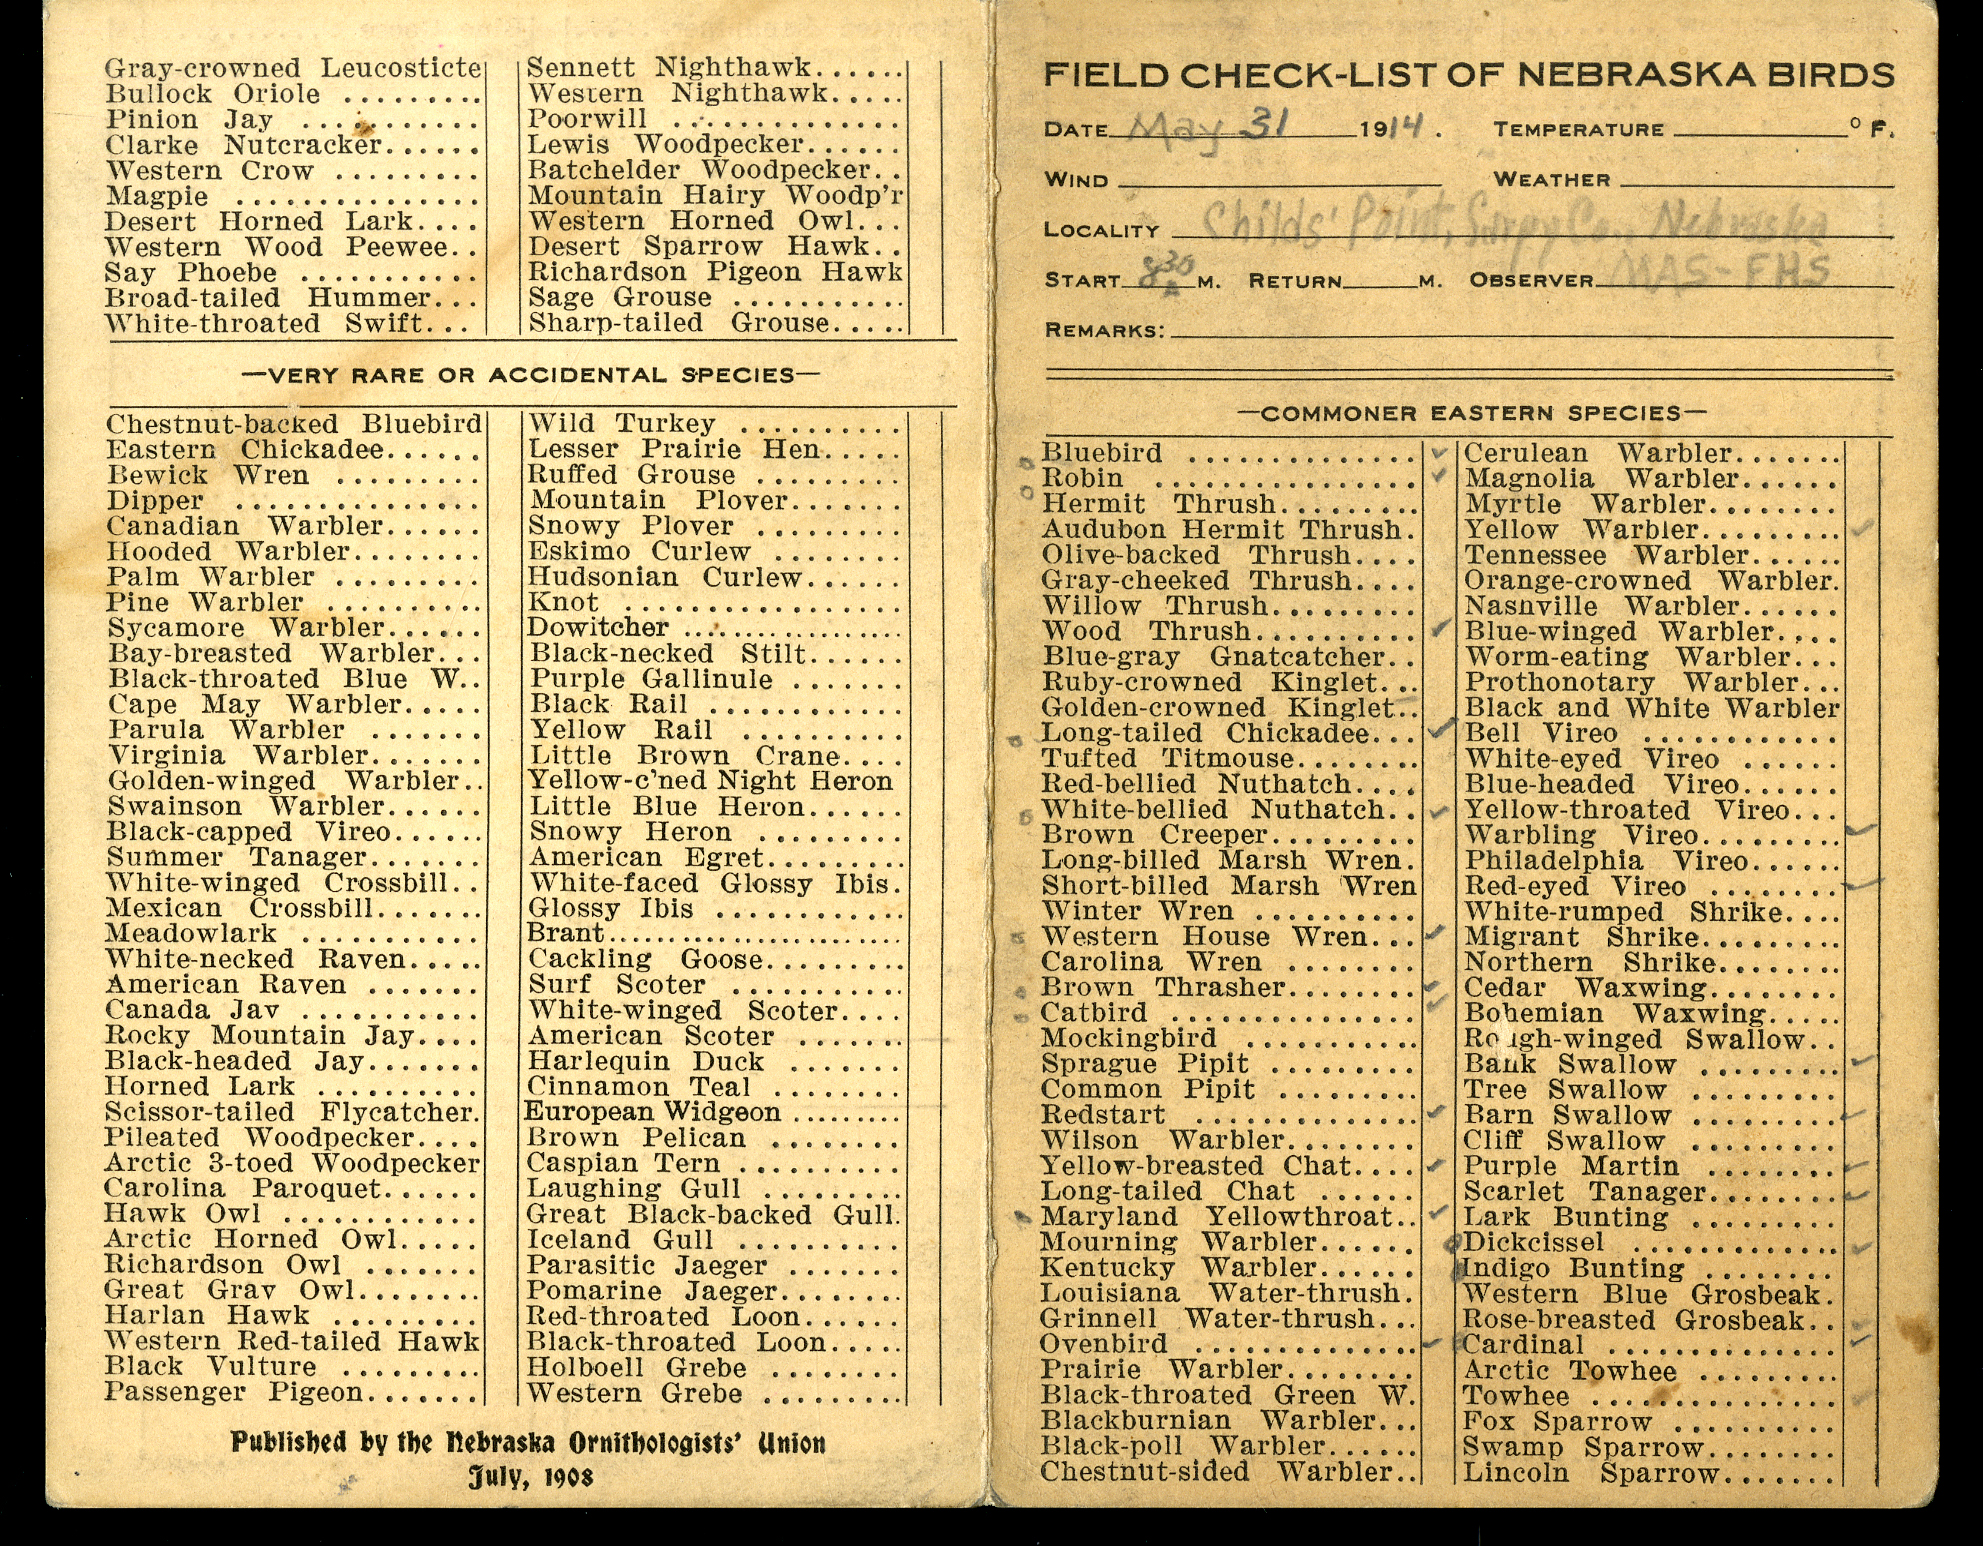 Gray-crowned Leucosticte
Bullock Oriole .........
Pinion Jay ...........
Clarke Nutcracker......
Western Crow .........
Magpie ...............
Desert Horned Lark....
Western Wood Peewee..
Say Phoebe ...........
Broad-tailed Hummer...
White-throated Swift...
Sennett Nighthawk......
Western Nighthawk.....
Poorwill ..............
Lewis Woodpecker......
Batchelder Woodpecker..
Mountain Hairy Woodp'r
Western Horned Owl...
Desert Sparrow Hawk..
Richardson Pigeon Hawk
Sage Grouse ...........
Sharp-tailed Grouse.....
—VERY RARE OR ACCIDENTAL SPECIES—
Chestnut-backed Bluebird
Eastern Chickadee......
Bewick Wren .........
Dipper ...............
Canadian Warbler......
Hooded Warbler........
Palm Warbler .........
Pine Warbler ..........
Sycamore Warbler......
Bay-breasted Warbler...
Black-throated Blue W..
Cape May Warbler.....
Parula Warbler .......
Virginia Warbler.......
Golden-winged Warbler..
Swainson Warbler......
Black-capped Vireo......
Summer Tanager.......
White-winged Crossbill..
Mexican Crossbill.......
Meadowlark ...........
White-necked Raven.....
American Raven .......
Canada Jay ...........
Rocky Mountain Jay....
Black-headed Jay.......
Horned Lark ..........
Scissor-tailed Flycatcher.
Pileated Woodpecker....
Arctic 3-toed Woodpecker
Carolina Paroquet......
Hawk Owl ............
Arctic Horned Owl.....
Richardson Owl .......
Great Gray Owl........
Harlan Hawk .........
Western Red-tailed Hawk
Black Vulture .........
Passenger Pigeon.......
Wild Turkey ..........
Lesser Prairie Hen.....
Ruffed Grouse .........
Mountain Plover.......
Snowy Plover .........
Eskimo Curlew ........
Hudsonian Curlew......
Knot .................
Dowitcher .................
Black-necked Stilt......
Purple Gallinule .......
Black Rail ............
Yellow Rail ..........
Little Brown Crane....
Yellow-c'ned Night Heron
Little Blue Heron......
Snowy Heron .........
American Egret.........
White-faced Glossy Ibis.
Glossy Ibis ............
Brant.......................
Cackling Goose.........
Surf Scoter ...........
White-winged Scoter....
American Scoter .......
Harlequin Duck .......
Cinnamon Teal ........
European Widgeon .........
Brown Pelican ........
Caspian Tern ..........
Laughing Gull .........
Great Black-backed Gull.
Iceland Gull ..........
Parasitic Jaeger .......
Pomarine Jaeger........
Red-throated Loon......
Black-throated Loon.....
Holboell Grebe ........
Western Grebe .........
Published by the Nebraska Ornithologists' Union
July, 1908
FIELD CHECK-LIST OF NEBRASKA BIRDS
DATE May 31 1914. TEMPERATURE ° F.
WIND WEATHER
LOCALITY Childs' Point, Sarpy Co., Nebraska
START 8 30 A M. RETURN M. OBSERVER MAS-FHS
REMARKS:
—COMMONER EASTERN SPECIES—
o Bluebird .............. ✓
o Robin ................ ✓
Hermit Thrush.........
Audubon Hermit Thrush.
Olive-backed Thrush....
Gray-cheeked Thrush....
Willow Thrush.........
Wood Thrush.......... ✓
Blue-gray Gnatcatcher..
Ruby-crowned Kinglet...
Golden-crowned Kinglet..
o Long-tailed Chickadee... ✓
Tufted Titmouse........
Red-bellied Nuthatch....
o White-bellied Nuthatch.. ✓
Brown Creeper.........
Long-billed Marsh Wren.
Short-billed Marsh Wren
Winter Wren ..........
o Western House Wren... ✓
Carolina Wren ........
o Brown Thrasher........ ✓
o Catbird ............... ✓
Mockingbird ...........
Sprague Pipit .........
Common Pipit .........
Redstart .............. ✓
Wilson Warbler........
Yellow-breasted Chat.... ✓
Long-tailed Chat ......
o Maryland Yellowthroat.. ✓
Mourning Warbler......
Kentucky Warbler......
Louisiana Water-thrush.
Grinnell Water-thrush...
Ovenbird .............. ✓
Prairie Warbler........
Black-throated Green W.
Blackburnian Warbler...
Black-poll Warbler......
Chestnut-sided Warbler..
Cerulean Warbler.......
Magnolia Warbler......
Myrtle Warbler........
Yellow Warbler......... ✓
Tennessee Warbler......
Orange-crowned Warbler.
Nashville Warbler......
Blue-winged Warbler....
Worm-eating Warbler...
Prothonotary Warbler...
Black and White Warbler
Bell Vireo ............
White-eyed Vireo ......
Blue-headed Vireo......
Yellow-throated Vireo...
Warbling Vireo......... ✓
Philadelphia Vireo......
Red-eyed Vireo ........ ✓
White-rumped Shrike....
Migrant Shrike.........
Northern Shrike........
Cedar Waxwing........
Bohemian Waxwing.....
Rough-winged Swallow..
Bank Swallow ......... ✓
Tree Swallow .........
Barn Swallow ......... ✓
Cliff Swallow .........
Purple Martin ........ ✓
Scarlet Tanager........ ✓
Lark Bunting .........
o Dickcissel ............. ✓
Indigo Bunting ........
Western Blue Grosbeak.
Rose-breasted Grosbeak.. ✓
Cardinal .............. ✓
Arctic Towhee .........
Towhee ............... ✓
Fox Sparrow ..........
Swamp Sparrow........
Lincoln Sparrow.......